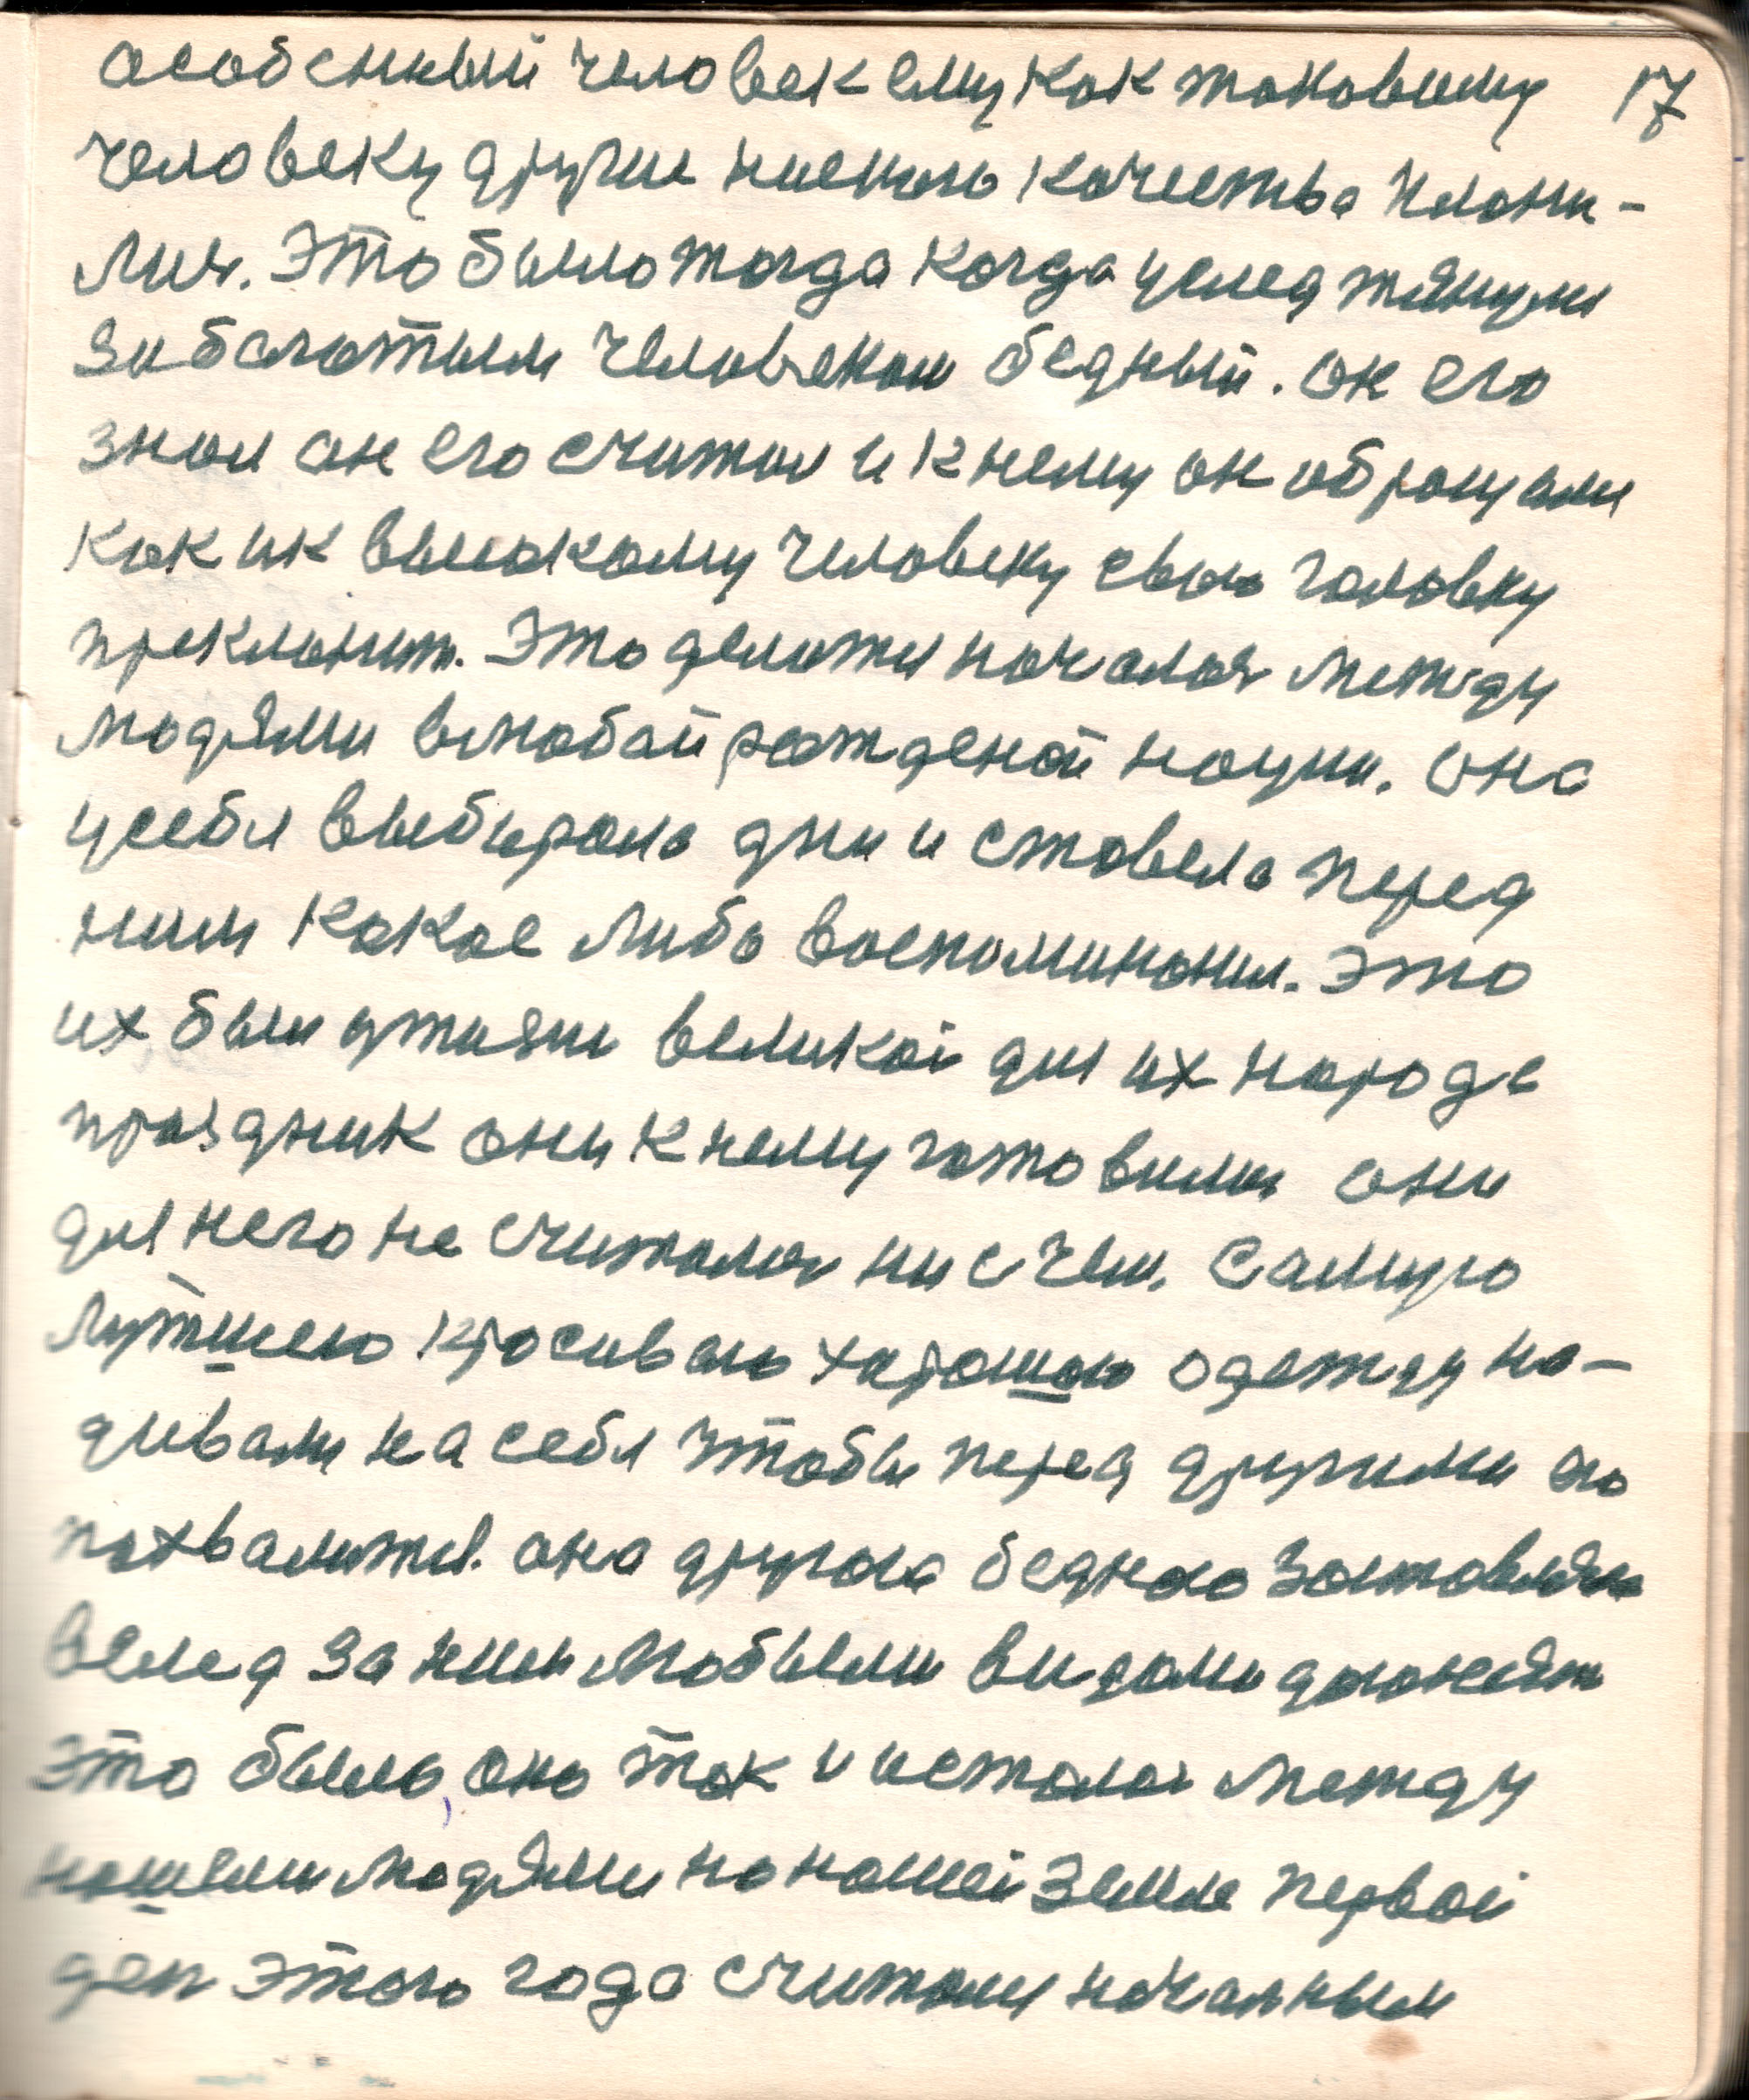 особенный человек ему как таковому 17
человеку другие низшого качества клони-
лись. Это было тогда когда услед тянули
за богатым человеком бедный. он его
знал он его считал и к нему он обращали
как ик высокому человеку свою головку
преклонит. Это делатся началось между
людями влюбай рожденой нации. она
усебя выбирала дни и ставела перед
ним какое либо воспоминания. это
их был ужизни великой для их народа
праздник они к нему готовились они
для него не считались ни с чем. Самую
лутшею красиваю харошаю одежду на-
дивали на себя чтобы перед другими ею
похвалится. она другова бедного заставляла
вслед за ним любыми видами догонять
это было, оно так и исталось между
нашими людями на нашей земле первой
ден этого года считали начальным